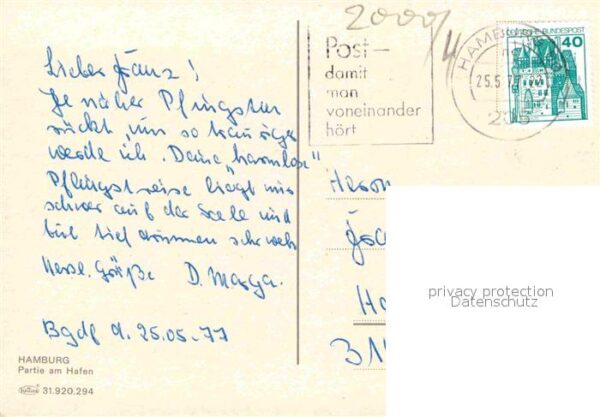 Lieber Franz!
Je näher Pfingsten
rückt, um so trauriger
werde ich. Deine "harmlose"
Pfingstreise liegt mir
schwer auf der Seele und
tut tief drinnen sehr weh
Herzl. Grüße D. Marga.
Bgdf d. 25.05.77
HAMBURG
Partie am Hafen
31.920.294
2000/4
Post-
damit
man
voneinander
hört
HAMBURG
25.5.77
205
DEUTSCHE BUNDESPOST
40
Herrn
privacy protection
Datenschutz